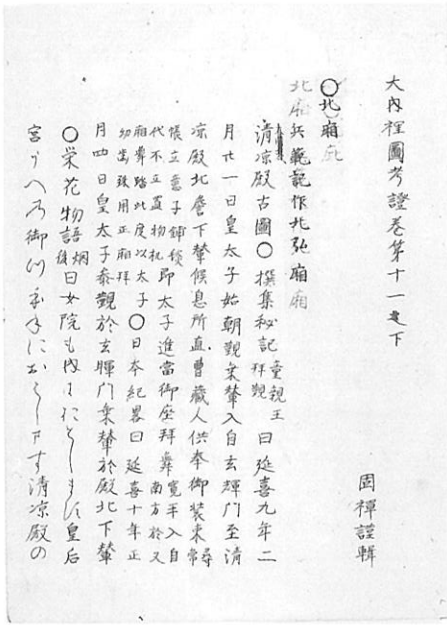 大內裡圖考證卷第十一之下
固禪謹輯
○北廂
北廂兵範記作北弘廂廂
清凉殿古圖○撰集秘記童親王拜覲曰延喜九年二
月廿一日皇太子始朝覲乘輦入自玄輝門至清
凉殿北廊下輦候息所直曹藏人供奉御裝束尋常
帳立倚子鋪毯代不立置物机即太子進當御座拜舞寬平入自南方於又
廂舞踏此度以太子幼齒殊用正廂拜○日本紀畧曰延喜十年正
月四日皇太子參覲於玄暉門乘輦於殿北下輦
○栄花物語煙後曰女院も内におはします皇后
宮うへの御つほねにおはします清凉殿の